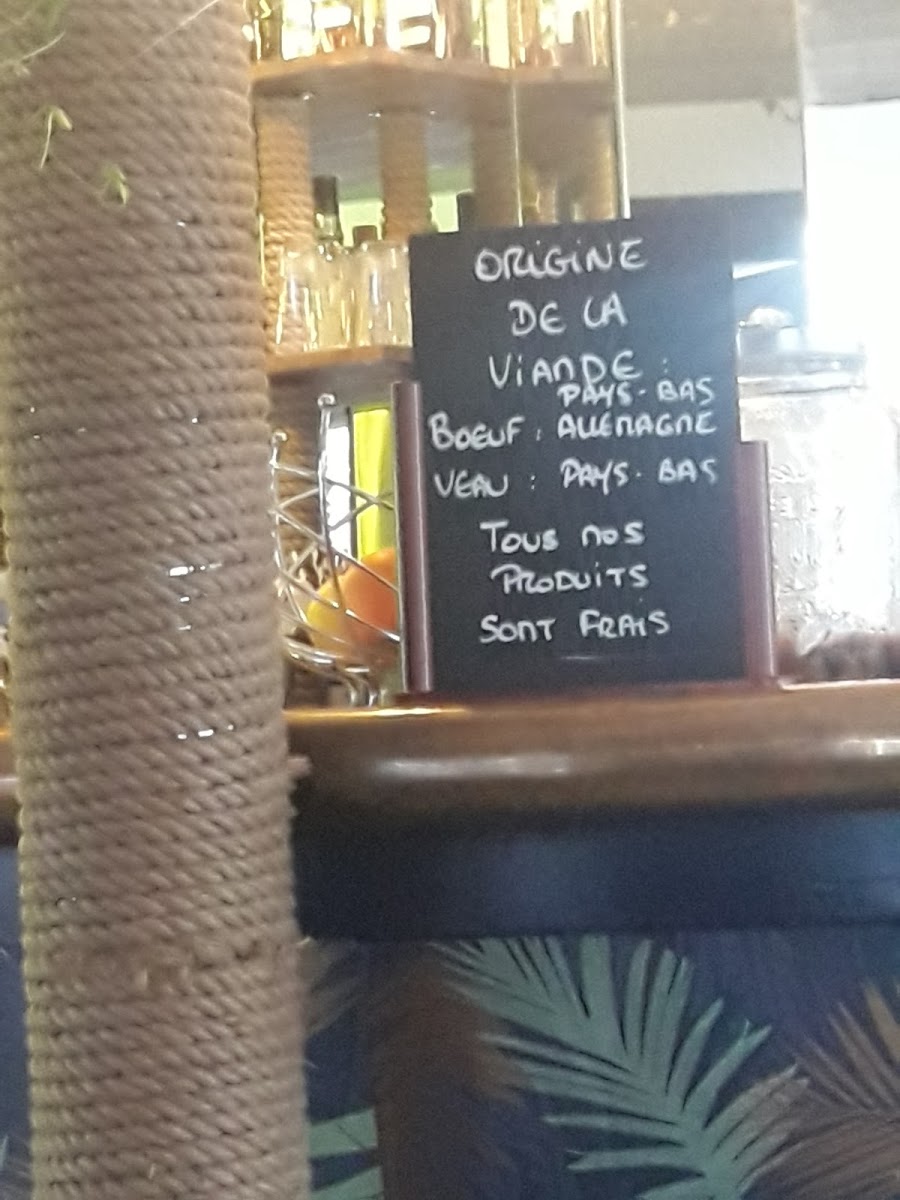 ORIGINE
DE LA
VIANDE :
PAYS-BAS
BOEUF : ALLEMAGNE
VEAU : PAYS-BAS
TOUS NOS
PRODUITS
SONT FRAIS